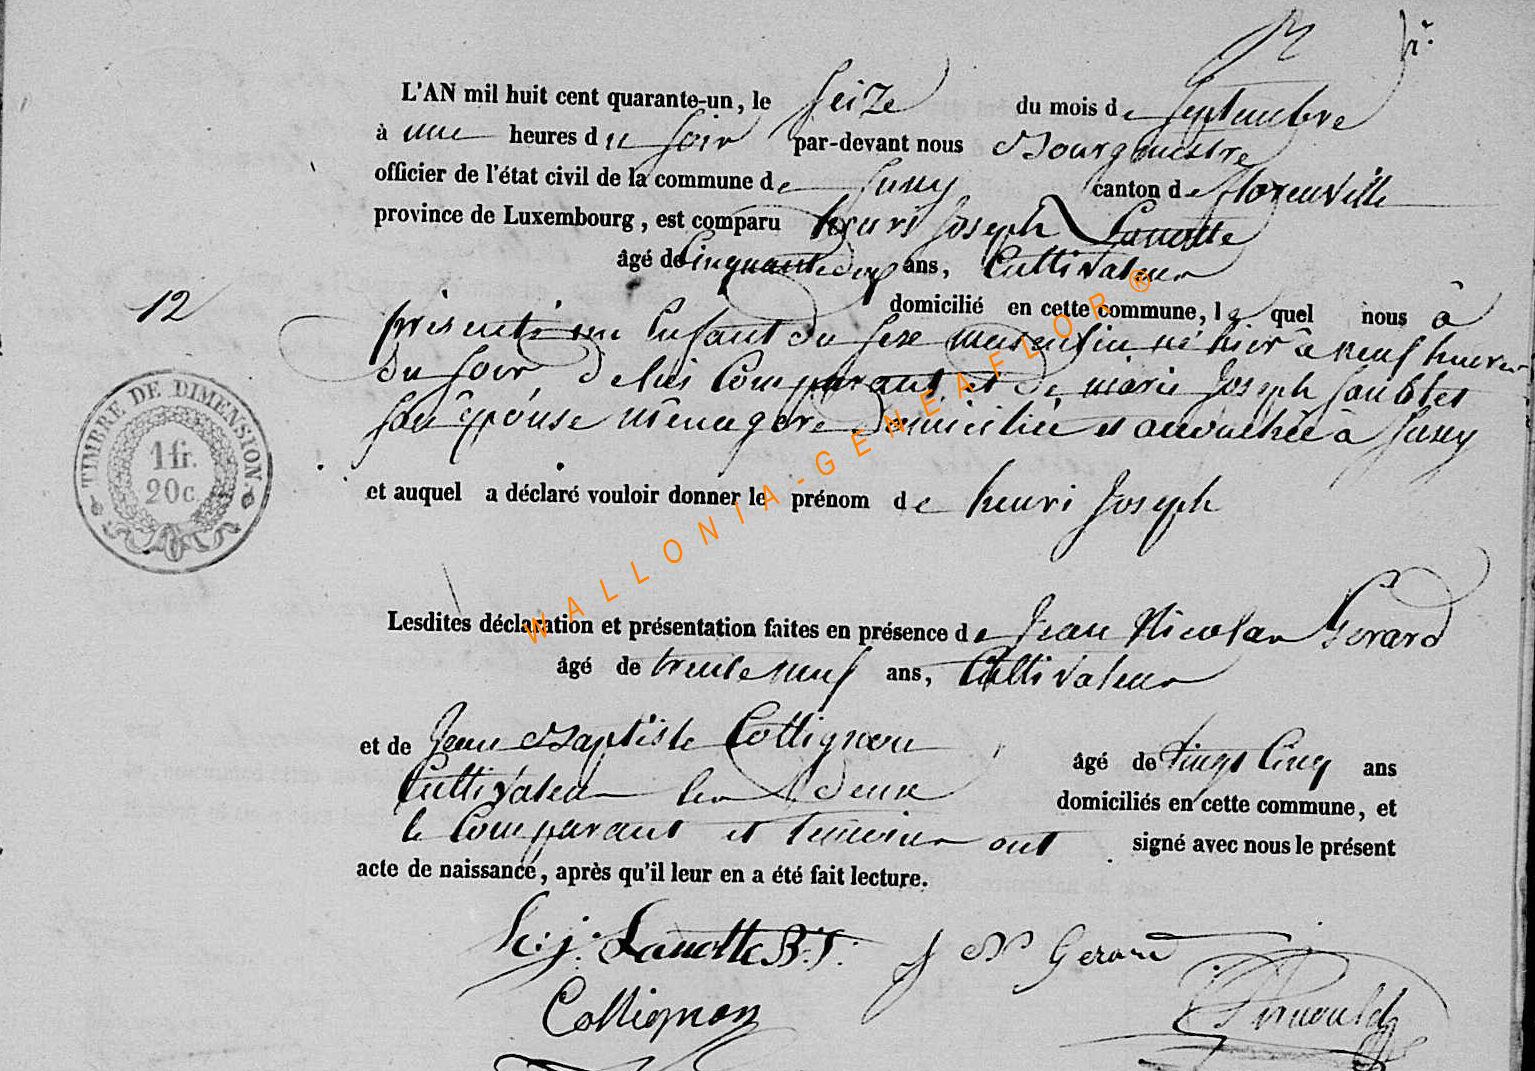 L'AN mil huit cent quarante-un, le seize du mois de septembre
à une heures du soir par-devant nous Bourgmestre
officier de l'état civil de la commune de canton de florenville
province de Luxembourg, est comparu henri joseph Lanotte
âgé de Cinquante ans, Cultivateur
12
domicilié en cette commune, le quel nous à
présenté un Enfant du sexe masculin né hier à neuf heures
du soir, de lui Comparant et de marie joseph
son Epouse ménagère domiciliée et accouchée à
et auquel a déclaré vouloir donner le prénom de henri joseph
TIMBRE DE DIMENSION
1 fr.
20 c.
Lesdites déclaration et présentation faites en présence de jean Nicolas Gerard
âgé de trente neuf ans, Cultivateur
et de jean Baptiste Collignon âgé de vingt Cinq ans
Cultivateur les deux domiciliés en cette commune, et
le Comparant et temoins ont signé avec nous le présent
acte de naissance, après qu'il leur en a été fait lecture.
h: j: Lanotte B:T: j N Gerard
Collignon
WALLONIA-GENEAFLOR®